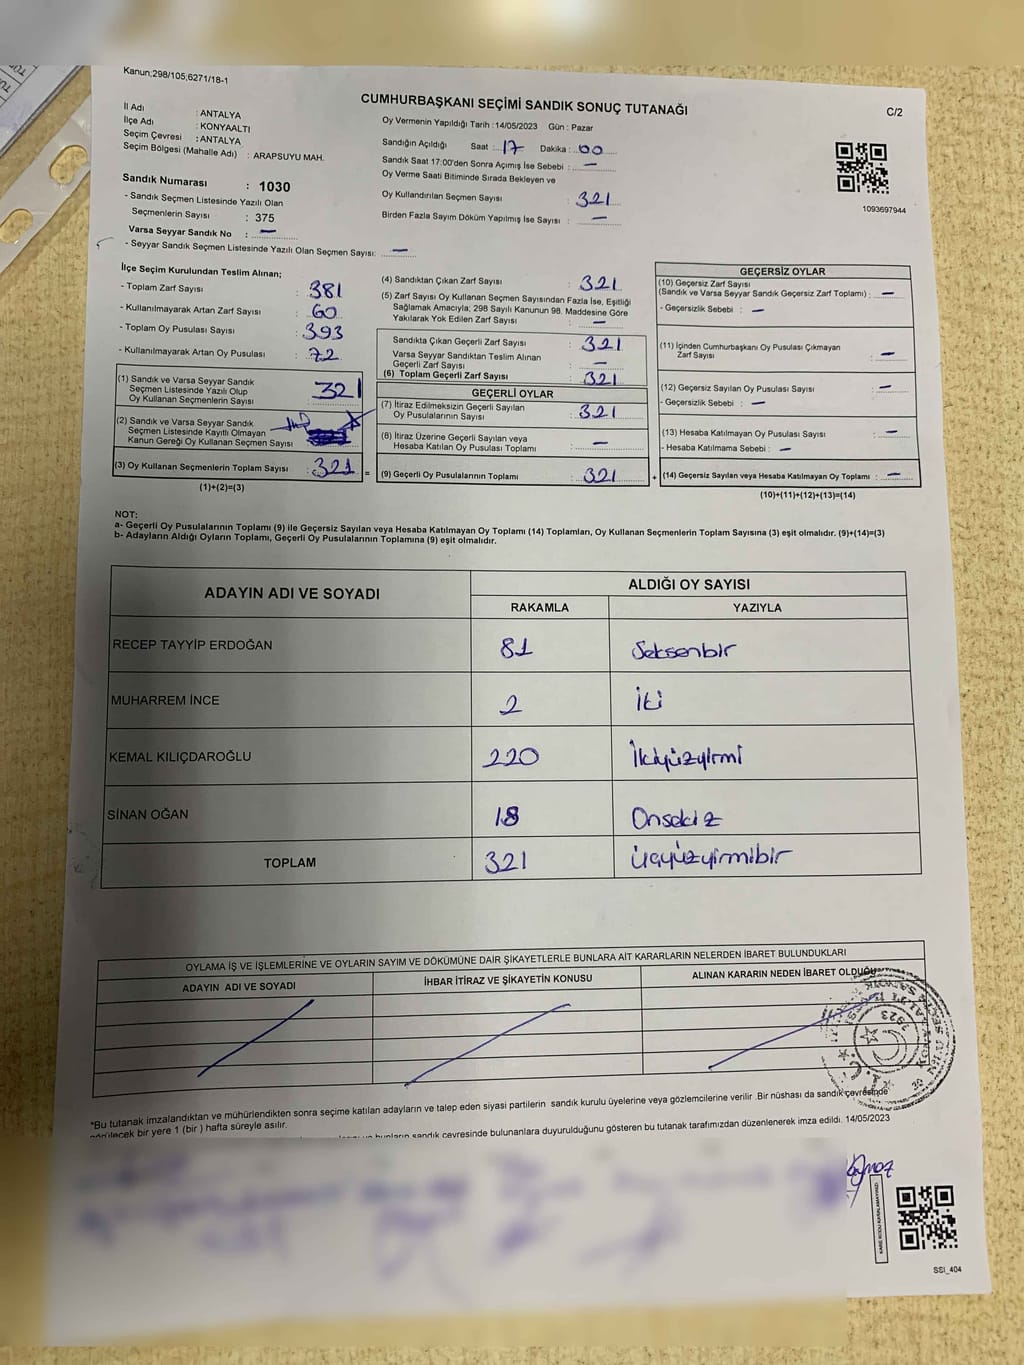 Kanun;298/105,6271/18-1
CUMHURBAŞKANI SEÇİMİ SANDIK SONUÇ TUTANAĞI
C/2
İl Adı : ANTALYA
İlçe Adı : KONYAALTI
Seçim Çevresi : ANTALYA
Seçim Bölgesi (Mahalle Adı) : ARAPSUYU MAH.
Sandık Numarası : 1030
- Sandık Seçmen Listesinde Yazılı Olan
Seçmenlerin Sayısı : 375
Varsa Seyyar Sandık No : —
- Seyyar Sandık Seçmen Listesinde Yazılı Olan Seçmen Sayısı: —
Oy Vermenin Yapıldığı Tarih :14/05/2023 Gün : Pazar
Sandığın Açıldığı Saat : 17 Dakika : 00
Sandık Saat 17:00'den Sonra Açımış İse Sebebi : —
Oy Verme Saati Bitiminde Sırada Bekleyen ve
Oy Kullandırılan Seçmen Sayısı : 321
Birden Fazla Sayım Döküm Yapılmış İse Sayısı : —
1093697944
İlçe Seçim Kurulundan Teslim Alınan;
- Toplam Zarf Sayısı : 381
- Kullanılmayarak Artan Zarf Sayısı : 60
- Toplam Oy Pusulası Sayısı : 393
- Kullanılmayarak Artan Oy Pusulası : 72
(1) Sandık ve Varsa Seyyar Sandık
Seçmen Listesinde Yazılı Olup
Oy Kullanan Seçmenlerin Sayısı 321
(2) Sandık ve Varsa Seyyar Sandık
Seçmen Listesinde Kayıtlı Olmayan
Kanun Gereği Oy Kullanan Seçmen Sayısı
(3) Oy Kullanan Seçmenlerin Toplam Sayısı : 321 =
(1)+(2)=(3)
(4) Sandıktan Çıkan Zarf Sayısı : 321
(5) Zarf Sayısı Oy Kullanan Seçmen Sayısından Fazla İse, Eşitliği
Sağlamak Amacıyla; 298 Sayılı Kanunun 98. Maddesine Göre
Yakılarak Yok Edilen Zarf Sayısı : —
Sandıkta Çıkan Geçerli Zarf Sayısı : 321
Varsa Seyyar Sandıktan Teslim Alınan
Geçerli Zarf Sayısı : —
(6) Toplam Geçerli Zarf Sayısı : 321
GEÇERLİ OYLAR
(7) İtiraz Edilmeksizin Geçerli Sayılan
Oy Pusulalarının Sayısı : 321
(8) İtiraz Üzerine Geçerli Sayılan veya
Hesaba Katılan Oy Pusulası Toplamı : —
(9) Geçerli Oy Pusulalarının Toplamı : 321 +
GEÇERSİZ OYLAR
(10) Geçersiz Zarf Sayısı
(Sandık ve Varsa Seyyar Sandık Geçersiz Zarf Toplamı) : —
- Geçersizlik Sebebi : —
(11) İçinden Cumhurbaşkanı Oy Pusulası Çıkmayan
Zarf Sayısı : —
(12) Geçersiz Sayılan Oy Pusulası Sayısı : —
- Geçersizlik Sebebi : —
(13) Hesaba Katılmayan Oy Pusulası Sayısı : —
- Hesaba Katılmama Sebebi : —
(14) Geçersiz Sayılan veya Hesaba Katılmayan Oy Toplamı : —
(10)+(11)+(12)+(13)=(14)
NOT:
a- Geçerli Oy Pusulalarının Toplamı (9) ile Geçersiz Sayılan veya Hesaba Katılmayan Oy Toplamı (14) Toplamları, Oy Kullanan Seçmenlerin Toplam Sayısına (3) eşit olmalıdır. (9)+(14)=(3)
b- Adayların Aldığı Oyların Toplamı, Geçerli Oy Pusulalarının Toplamına (9) eşit olmalıdır.
ADAYIN ADI VE SOYADI
ALDIĞI OY SAYISI
RAKAMLA YAZIYLA
RECEP TAYYİP ERDOĞAN 81 Seksenbir
MUHARREM İNCE 2 İki
KEMAL KILIÇDAROĞLU 220 İkiyüzyirmi
SİNAN OĞAN 18 Onsekiz
TOPLAM 321 üçyüzyirmibir
OYLAMA İŞ VE İŞLEMLERİNE VE OYLARIN SAYIM VE DÖKÜMÜNE DAİR ŞİKAYETLERLE BUNLARA AİT KARARLARIN NELERDEN İBARET BULUNDUKLARI
ADAYIN ADI VE SOYADI İHBAR İTİRAZ VE ŞİKAYETİN KONUSU ALINAN KARARIN NEDEN İBARET OLDUĞU
*Bu tutanak imzalandıktan ve mühürlendikten sonra seçime katılan adayların ve talep eden siyasi partilerin sandık kurulu üyelerine veya gözlemcilerine verilir .Bir nüshası da sandık çevresinde
görülecek bir yere 1 (bir ) hafta süreyle asılır.
bunların sandık çevresinde bulunanlara duyurulduğunu gösteren bu tutanak tarafımızdan düzenlenerek imza edildi. 14/05/2023
KARE KODU KARALAMAYINIZ!
SSI_404